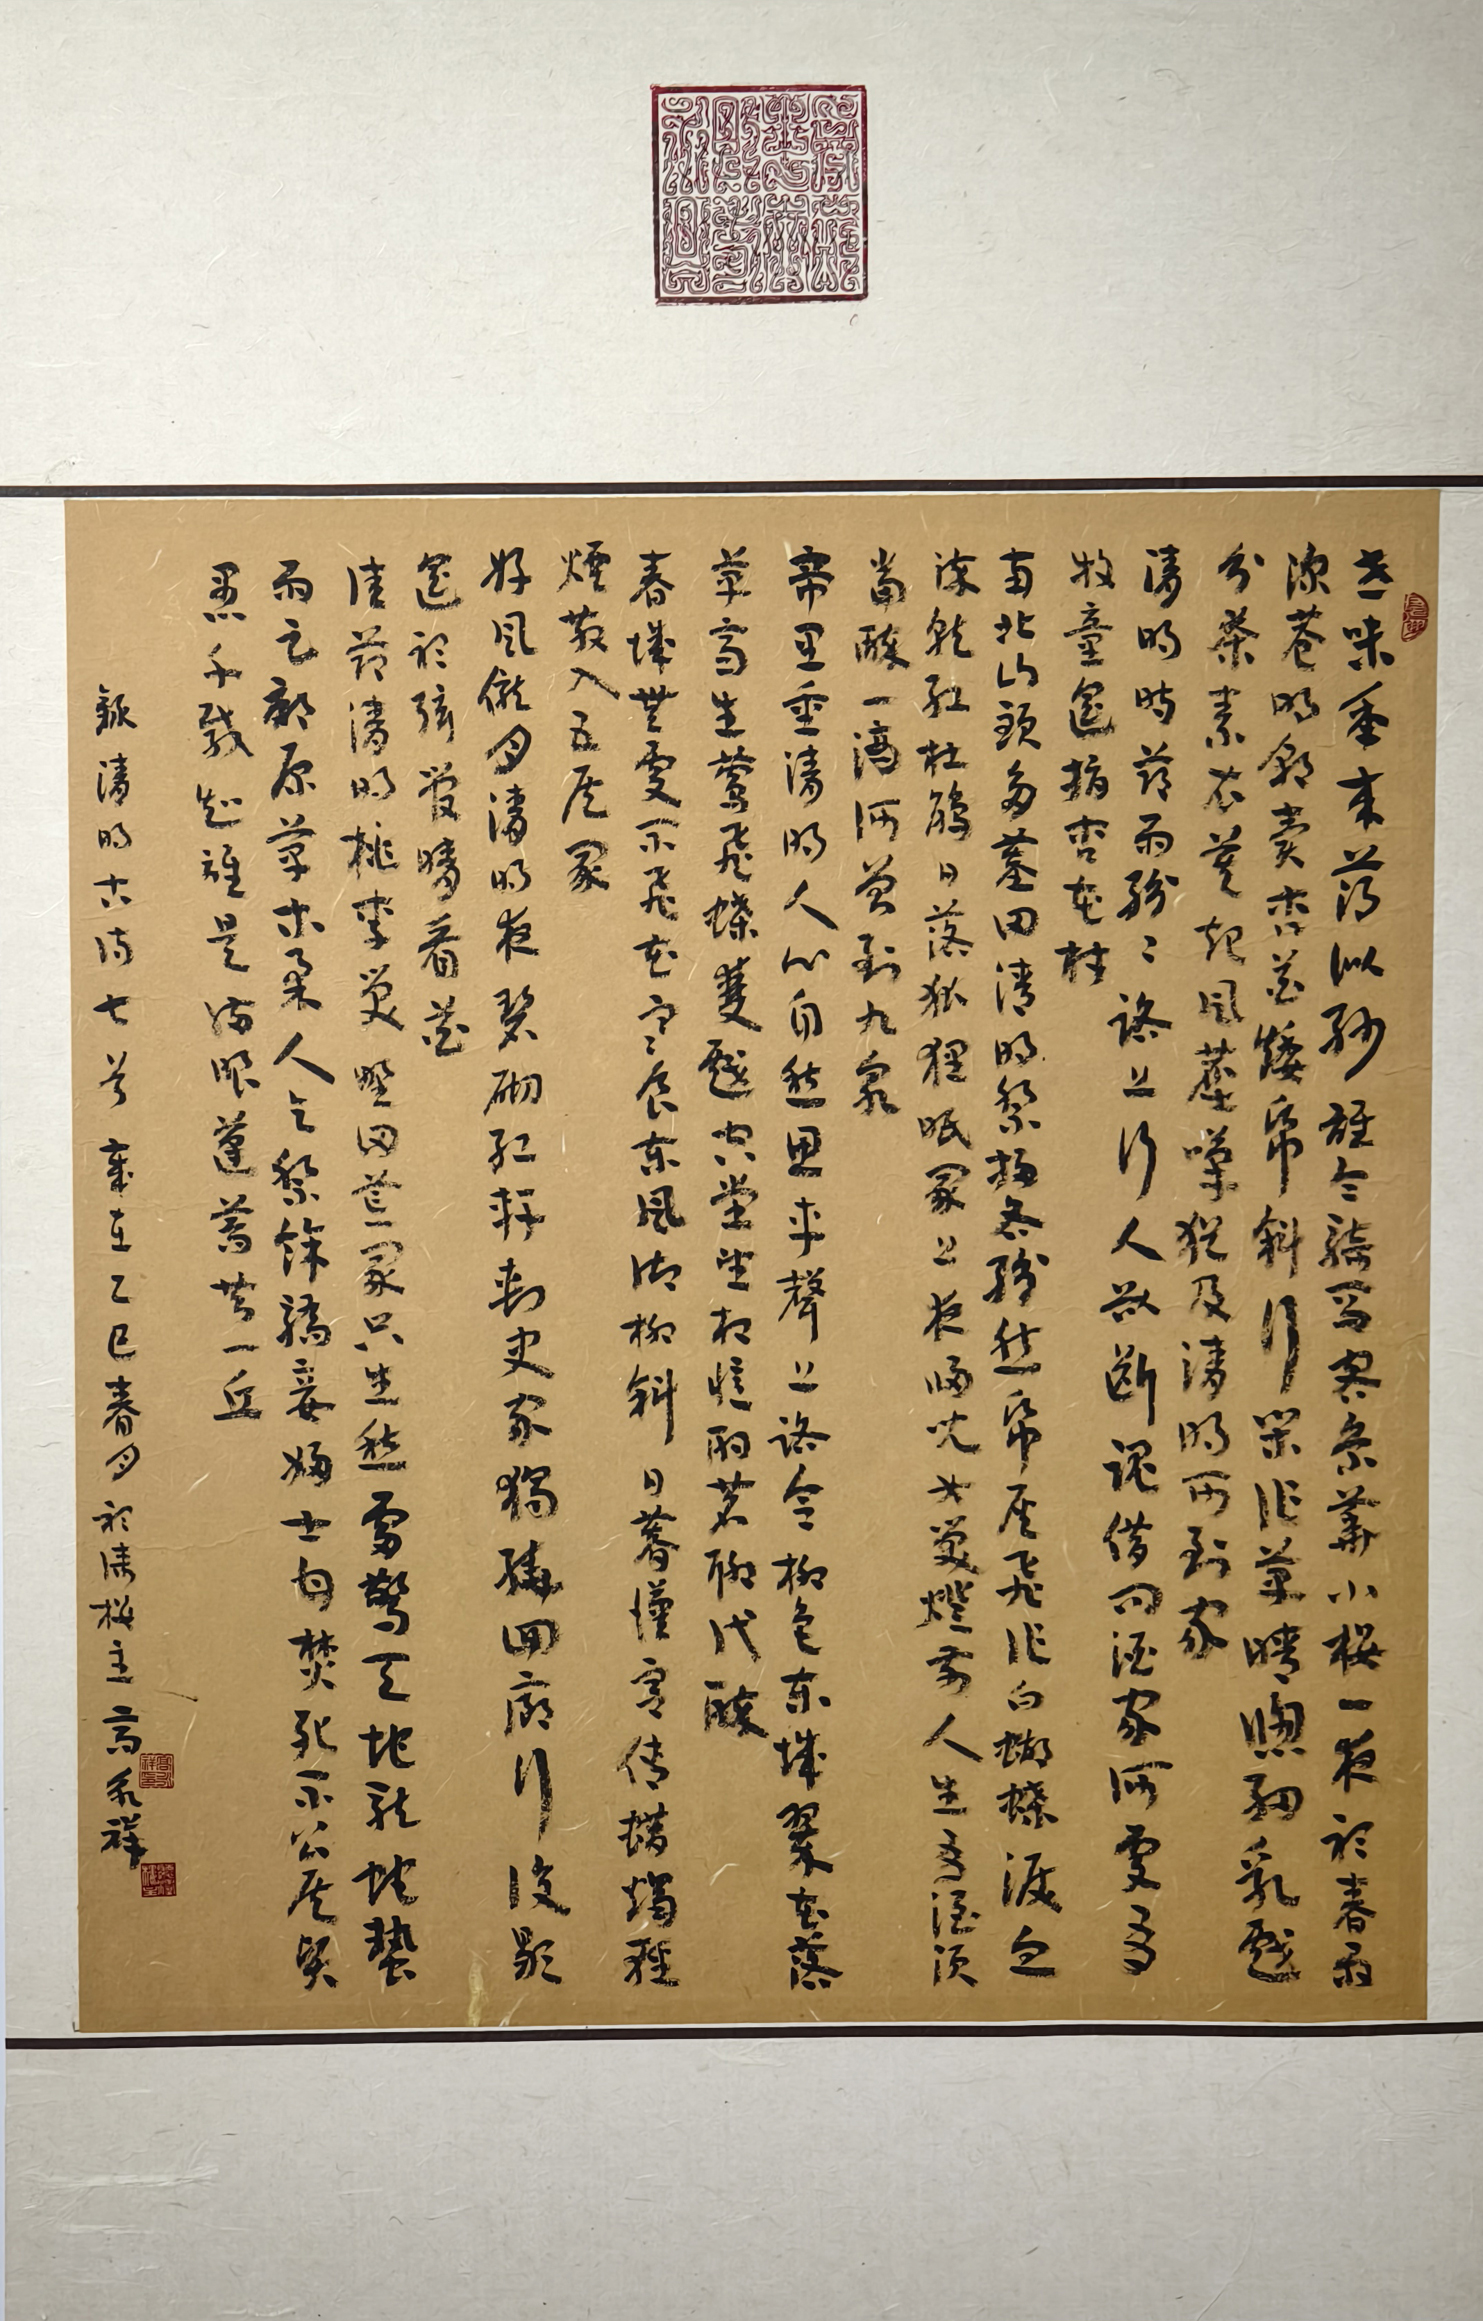 世味年來薄似紗誰令騎馬客京華小樓一夜聽春雨
深巷明朝賣杏花矮紙斜行閑作草晴窗細乳戲
分茶素衣莫起風塵嘆猶及清明可到家
清明時節雨紛〻路上行人欲斷魂借問酒家何處有
牧童遙指杏花村
南北山頭多墓田清明祭掃各紛然紙灰飛作白蝴蝶淚血
染紅杜鵑日落狐狸眠冢上夜歸兒女笑燈前人生有酒須
當醉一滴何曾到九泉
帝里重清明人心自愁思車聲上路合柳色東城翠花落
草齊生鶯飛蝶雙戲空堂坐相憶酌茗聊代醉
春城無處不飛花寒食東風御柳斜日暮漢宮傳蠟燭輕
煙散入五侯家
好風朧月清明夜碧砌紅軒刺史家獨繞回廊行復歇
遙聽弦管暗看花
佳節清明桃李笑野田荒冢只生愁雷驚天地龍蛇蟄
雨足郊原草木柔人乞祭餘驕妾婦士甘焚死不公侯賢
愚千載知誰是滿眼蓬蒿共一丘
錄清明古詩七首歲在乙巳春月於樓主高永祥